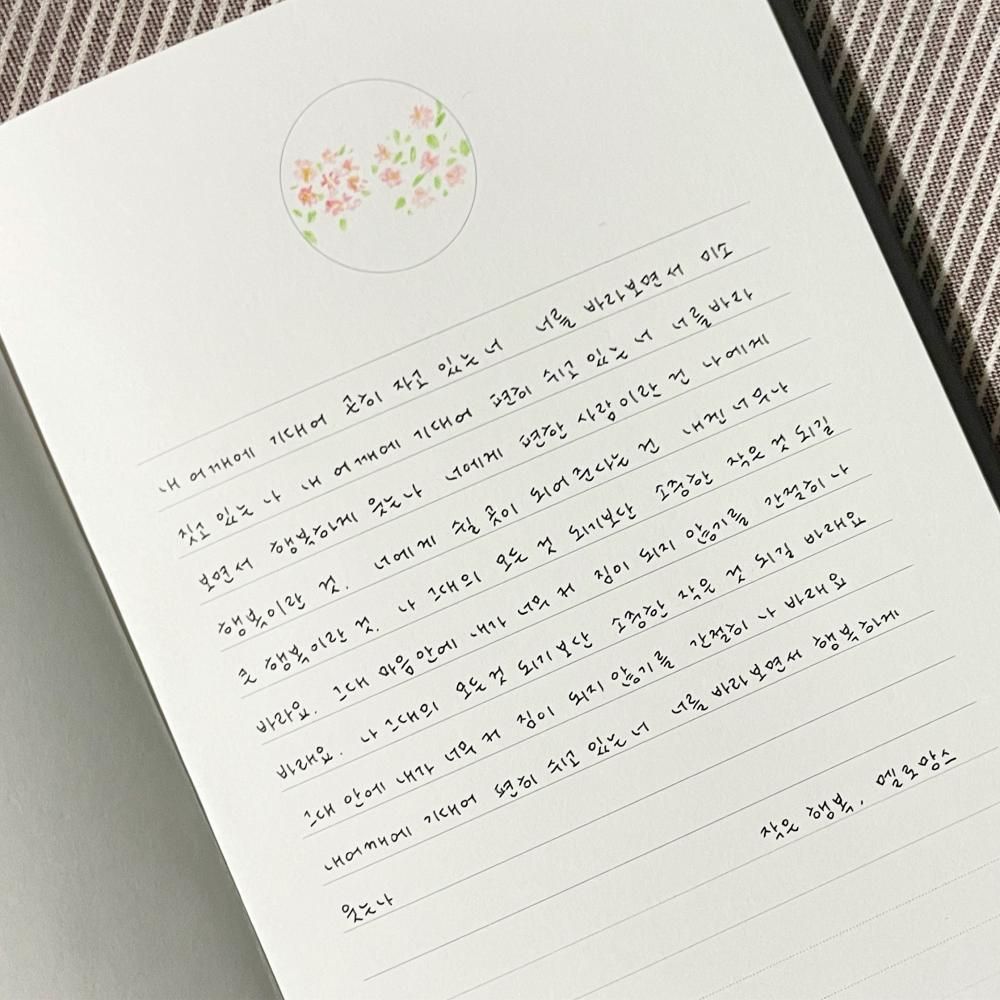 내 어깨에 기대어 곤히 자고 있는 너 너를 바라보면서 미소
짓고 있는 나 내 어깨에 기대어 편히 쉬고 있는 너 너를 바라
보면서 행복하게 웃는 나 너에게 편한 사람이란 건 나에게
행복이란 것. 너에게 쉴 곳이 되어 준다는 건 내겐 너무나
큰 행복이란 것. 나 그대의 모든 것 되기보단 소중한 작은 것 되길
바라요. 그대 마음 안에 내가 너무 커 짐이 되지 않기를 간절히 나
바래요. 나 그대의 모든 것 되기보단 소중한 작은 것 되길 바래요
그대 안에 내가 너무 커 짐이 되지 않기를 간절히 나 바래요
내 어깨에 기대어 편히 쉬고 있는 너 너를 바라보면서 행복하게
웃는 나
작은 행복, 멜로망스